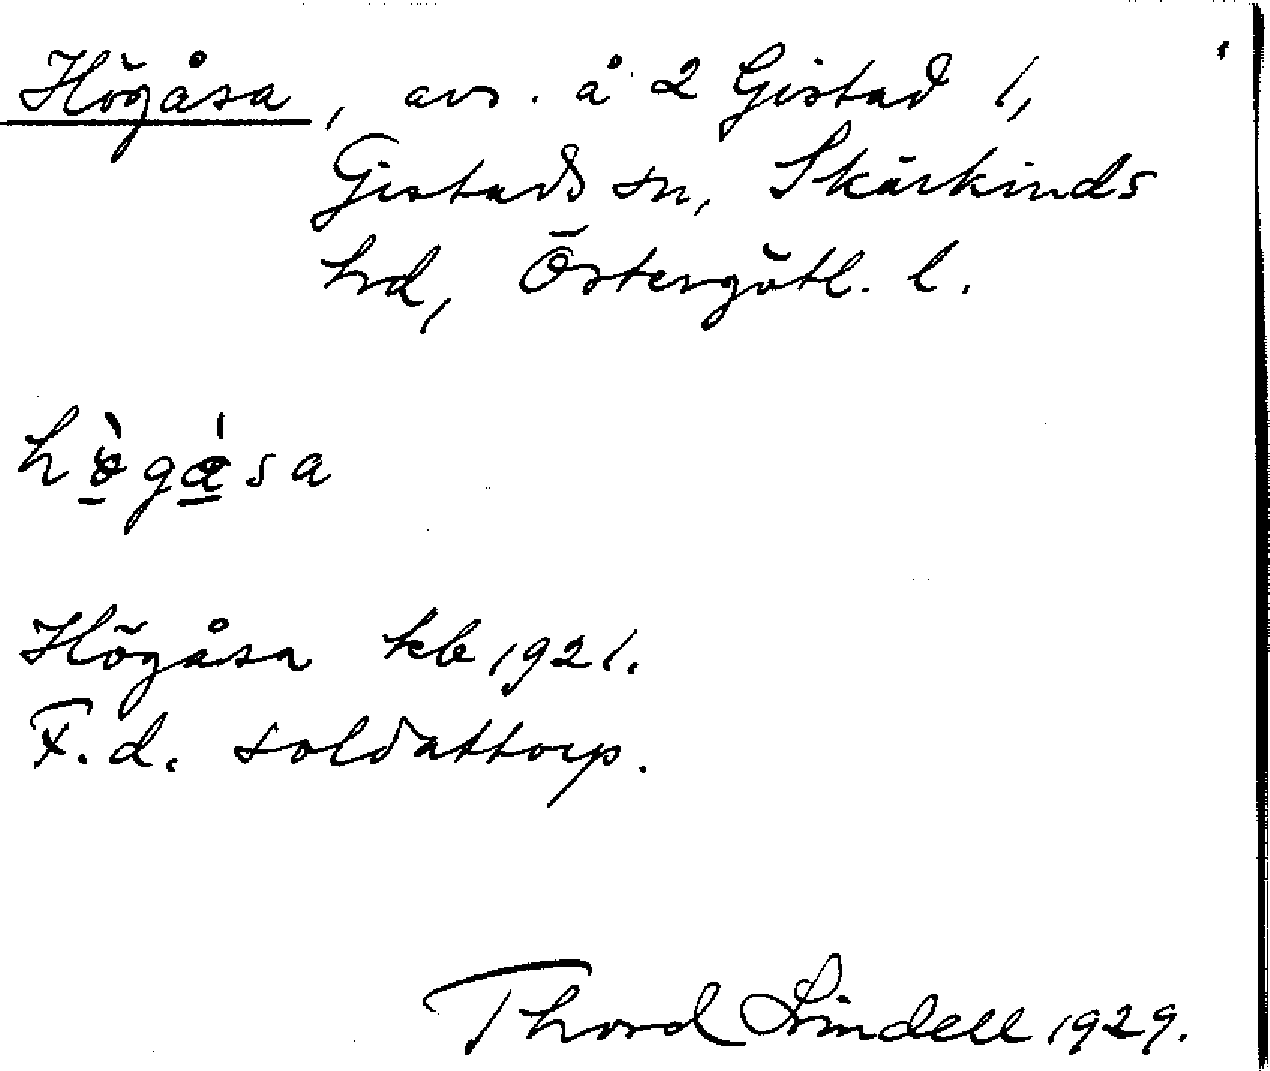 Högåsa, avs. å 2 Gistad 1,
Gistads sn, Skärkinds
hd, Östergötl. l.
hògása
Högåsa kb 1921.
F.d. soldattorp.
Thord Lindell 1929.